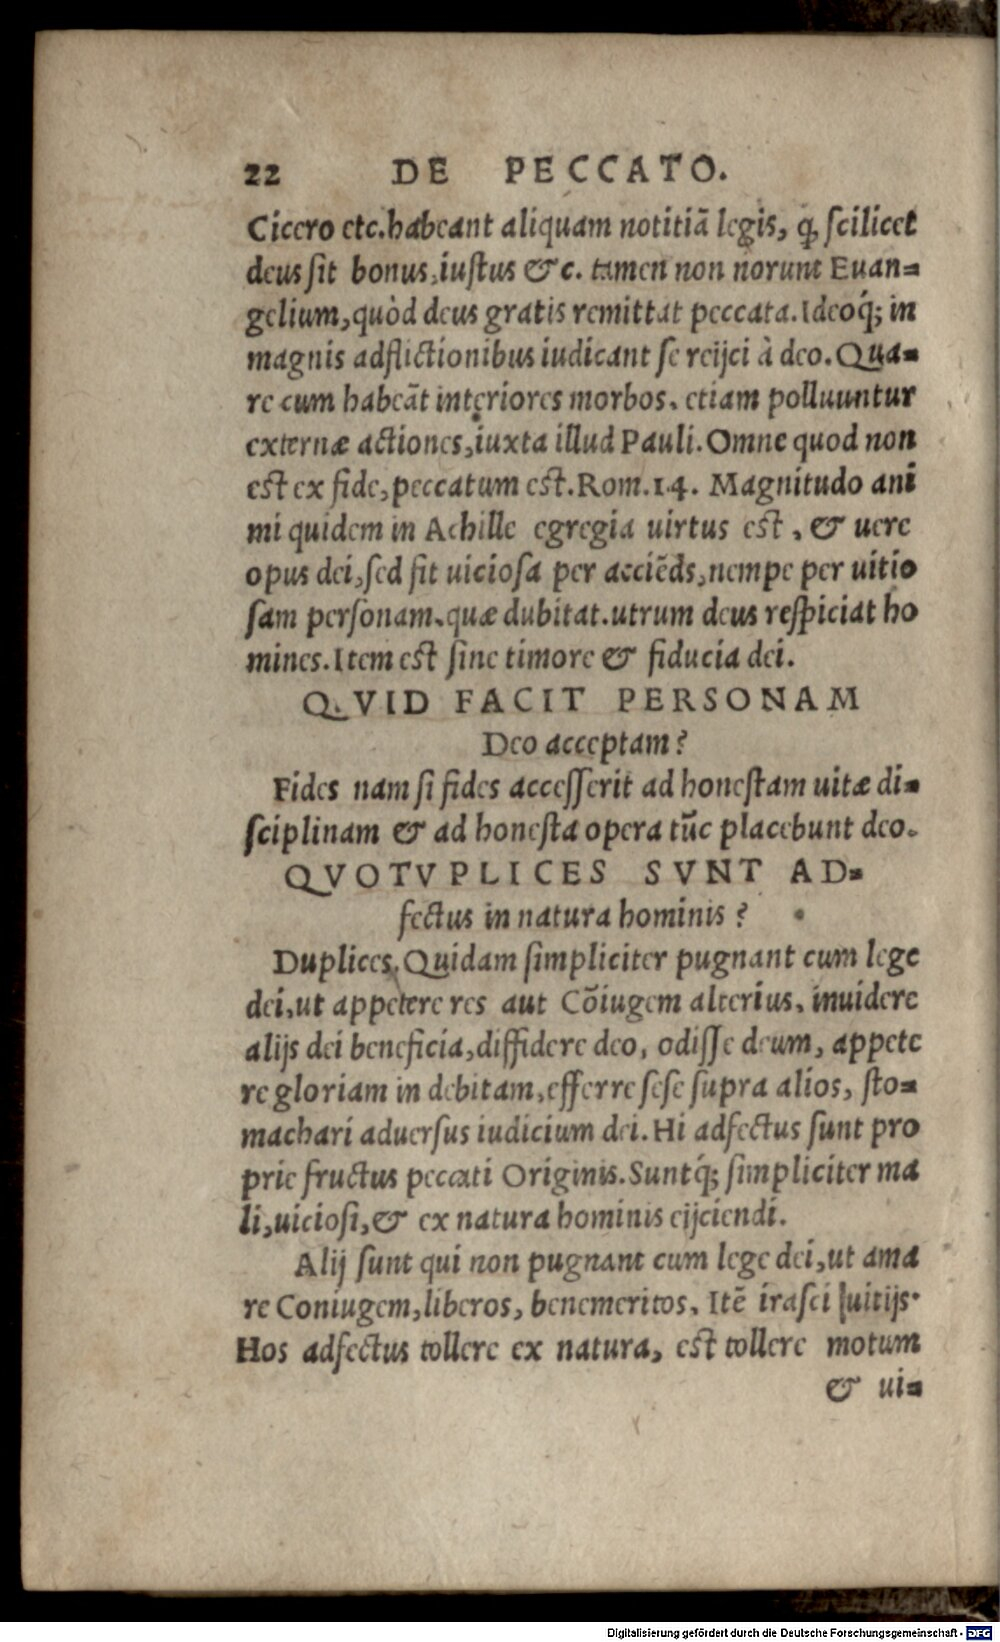 22 DE PECCATO.
Cicero etc. habeant aliquam notitiã legis, ꝙ ſcilicet
deus ſit bonus, iuſtus &c. tamen non norunt Euan=
gelium, quòd deus gratis remittat peccata. Ideoq́; in
magnis adflictionibus iudicant ſe reijci à deo. Qua=
re cum habeãt interiores morbos, etiam polluuntur
externæ actiones, iuxta illud Pauli. Omne quod non
est ex fide, peccatum est. Rom. 14. Magnitudo ani
mi quidem in Achille egregia uirtus est, & uere
opus dei, ſed fit uicioſa per acciẽds, nempe per uitio
ſam perſonam, quæ dubitat. utrum deus reſpiciat ho
mines. Item est ſine timore & fiducia dei.
QVID FACIT PERSONAM
Deo acceptam?
Fides nam ſi fides acceſſerit ad honeſtam uitæ di=
ſciplinam & ad honeſta opera tũc placebunt deo.
QVOTVPLICES SVNT AD=
fectus in natura hominis?
Duplices. Quidam ſimpliciter pugnant cum lege
dei, ut appetere res aut Cõiugem alterius, inuidere
alijs dei beneficia, diffidere deo, odiſſe deum, appete
re gloriam in debitam, efferre ſeſe ſupra alios, ſto=
machari aduerſus iudicium dei. Hi adfectus ſunt pro
prie fructus peccati Originis. Suntq́; ſimpliciter ma
li, uicioſi, & ex natura hominis eijciendi.
Alij ſunt qui non pugnant cum lege dei, ut ama
re Coniugem, liberos, benemeritos. Itẽ iraſci ſuitijs.
Hos adfectus tollere ex natura, est tollere motum
& ui=
Digitalisierung gefördert durch die Deutsche Forschungsgemeinschaft - DFG